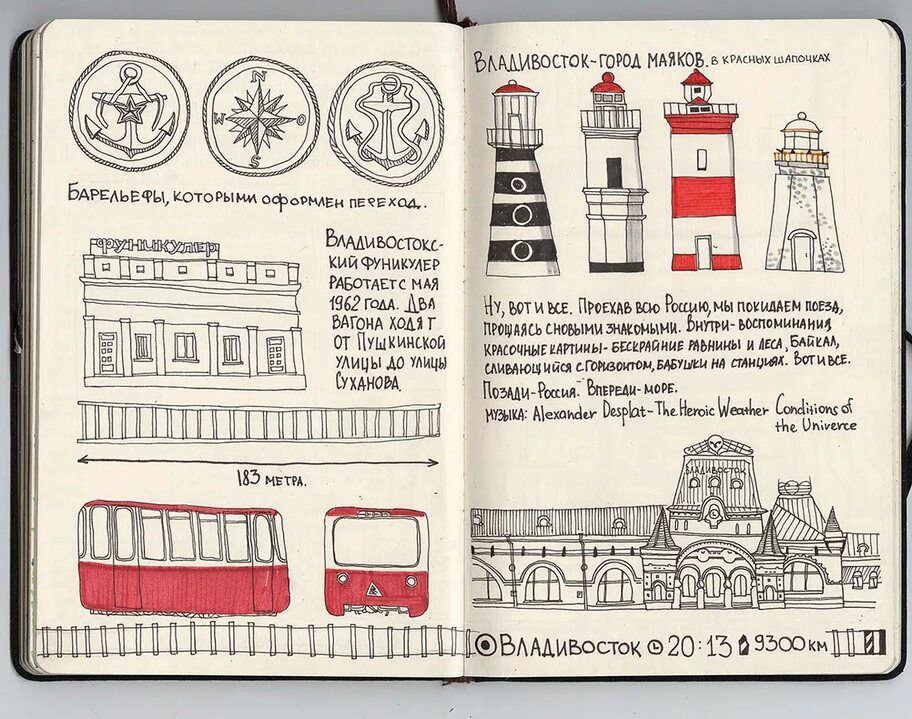 N
W
O
S
Барельефы, которыми оформлен переход.
ФУНИКУЛЕР
Владивостокс-
кий фуникулер
работает с мая
1962 года. Два
вагона ходят
от Пушкинской
улицы до улицы
Суханова.
183 метра.
Владивосток-город маяков. в красных шапочках
Ну, вот и все. Проехав всю Россию, мы покидаем поезд,
прощаясь с новыми знакомыми. Внутри-воспоминания,
красочные картины-бескрайние равнины и леса, Байкал,
сливающийся с горизонтом, бабушки на станциях. Вот и все.
Позади-Россия. Впереди-море.
музыка: Alexander Desplat-The Heroic Weather Conditions of
the Univerce
ВЛАДИВОСТОК
Владивосток 20:13 9300 км